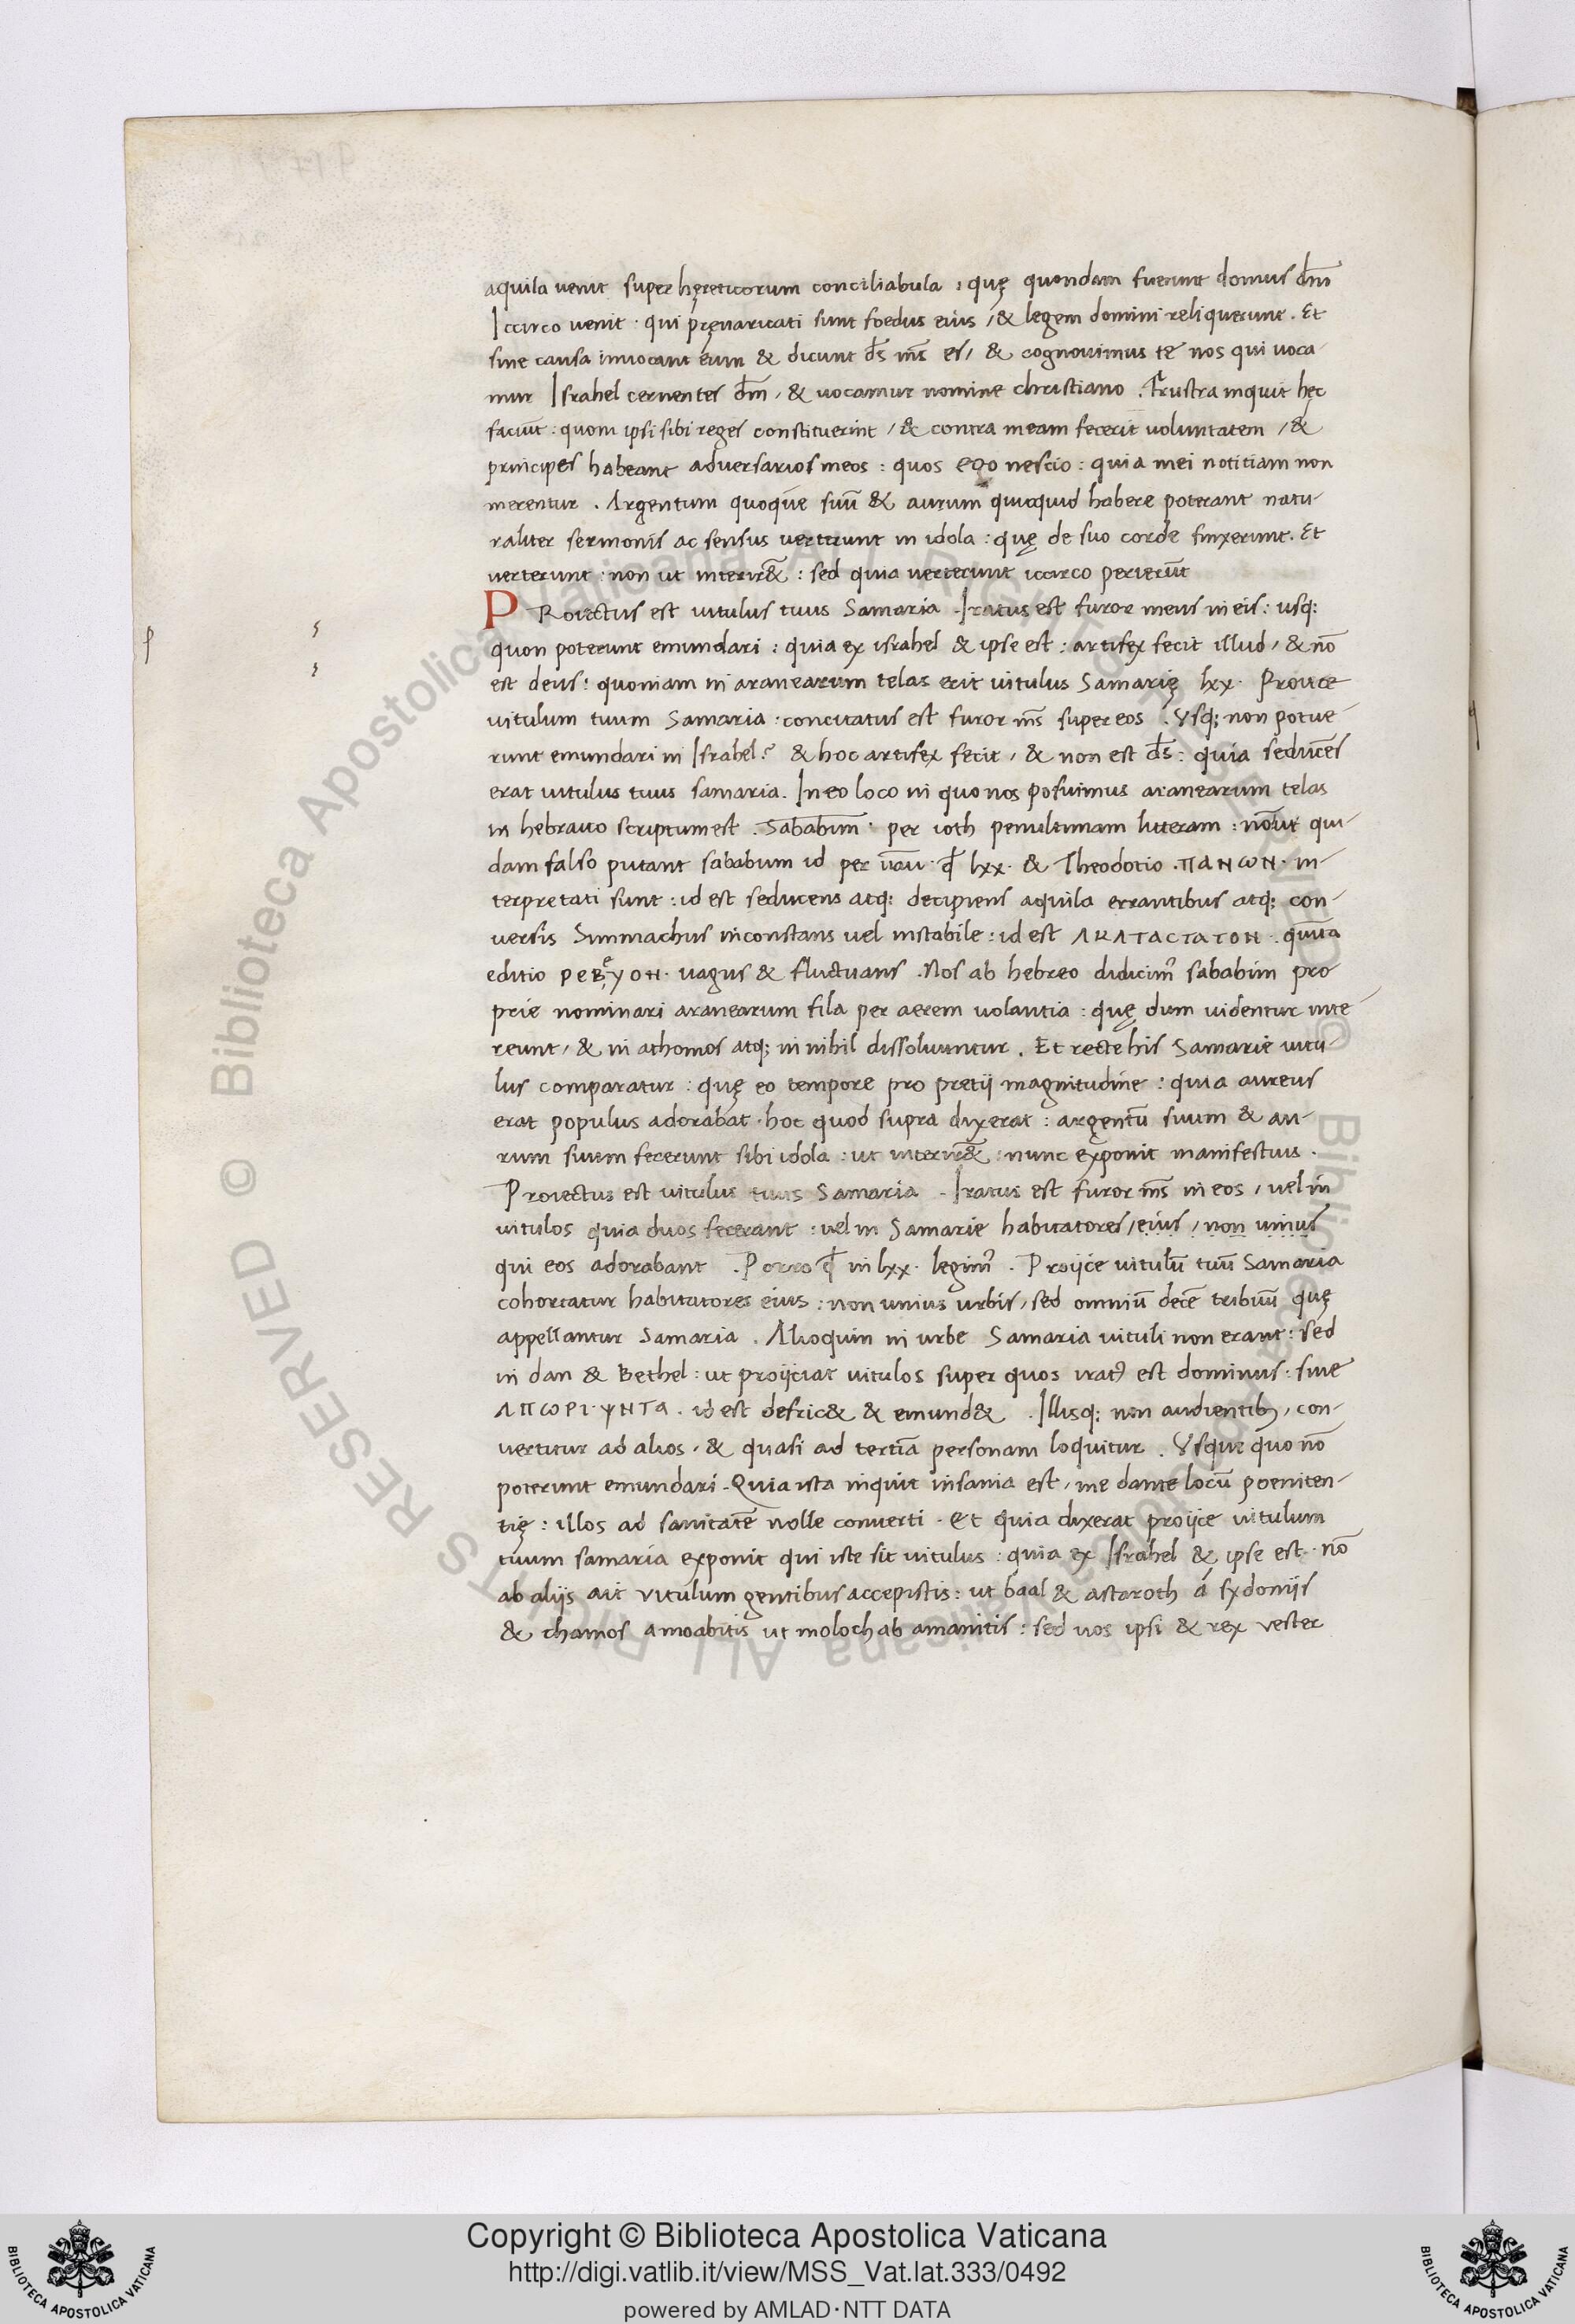 aquila uenit super hęreticorum conciliabula : quę quondam fuerunt domus dn̄i
Iccirco uenit · qui pręuaricati sunt foedus eius / & legem domini reliquerunt . Et
sine causa inuocant eum & dicunt d̄s m̄s es / & cognouimus te nos qui uoca-
mur Israhel cernentes dm̄ , & uocamur nomine christiano . Frustra inquit hęc
faciūt : quom ipsi sibi reges constituerint / & contra meam fecerīt uoluntatem / &
principes habeant aduersarios meos : quos ego nescio : quia mei notitiam non
merentur . Argentum quoque suū & aurum quicquid habere poterant natu-
raliter sermonis ac sensus uerterunt in idola : quę de suo corde finxerunt. Et
uerterunt : non ut interir& : sed quia uerterunt iccirco perierūt
PRoiectus est uitulus tuus Samaria . Iratus est furor meus in eis : usq;
quon poterunt emundari : quia ex israhel & ipse est : artifex fecit illud / & nō
est deus : quoniam in aranearum telas erit uitulus Samarię lxx · Proiice
uitulum tuum Samaria · concitatus est furor m̄s super eos . Vsq; non potue-
runt emundari in Israhel ? & hoc artifex fecit / & non est d̄s : quia seducēs
erat uitulus tuus samaria . In eo loco in quo nos posuimus aranearum telas
in hebraico scriptum est . Sababim · per ioth penultimam litteram : nō ut qui-
dam falso putant sababum id per uau · qđ lxx · & Theodotio . ΠΑΝωΝ · in-
terpretati sunt : id est seducens atq; decipiens aquila errantibus atq; con-
uersis Simmachus inconstans uel instabile : id est ΑΚΑΤΑCΤΑΤΟΝ · quīta
editio ΡΕΒεΥΟΝ · uagus & fluctuans . Nos ab hebreo didicim9 sababim pro
prie nominari aranearum fila per aerem uolantia : quę dum uidentur inte-
reunt / & in athomos atq; in nihil dissoluuntur . Et recte his Samarie uitu-
lus comparatur : quę eo tempore pro pretij magnitudine : quia aureus
erat populus adorabat · hoc quod supra dixerat : argentū suum & au-
rum suum fecerunt sibi idola : ut interir& : nunc exponit manifestius .
Proiectus est uitulus tuus Samaria . Iratus est furor m̄s in eos / uel in
uitulos quia duos fecerant : uel in Samarie habitatores / eius / non unius
qui eos adorabant . Porro qđ in lxx · legim9 . Proijce uitulū tuū Samaria
cohortatur habitatores eius : non unius urbis / sed omniū decē tribuū quę
appellantur Samaria . Alioquin in urbe Samaria uituli non erant : sed
in dan & Bethel : ut proijciat uitulos super quos irat9 est dominus : siue
ΑΠωΡΙ·ΨΗΤΑ . id est defric& & emund& . Illisq; non audientib; , con-
uertitur ad alios / & quasi ad tertiā personam loquitur . Vsque quo nō
poterunt emundari . Quia ista inquit insania est / me dante locū poeniten-
tię : illos ad sanitatē nolle conuerti . Et quia dixerat proijce uitulum
tuum samaria exponit qui iste sit uitulus : quia ex Israhel & ipse est · nō
ab alijs ait uitulum gentibus accepistis : ut baal & astaroth á sydonijs
& chamos a moabitis ut moloch ab amanitis : sed uos ipsi & rex uester
Copyright © Biblioteca Apostolica Vaticana
http://digi.vatlib.it/view/MSS_Vat.lat.333/0492
powered by AMLAD·NTT DATA
BIBLIOTECA APOSTOLICA VATICANA
BIBLIOTECA APOSTOLICA VATICANA